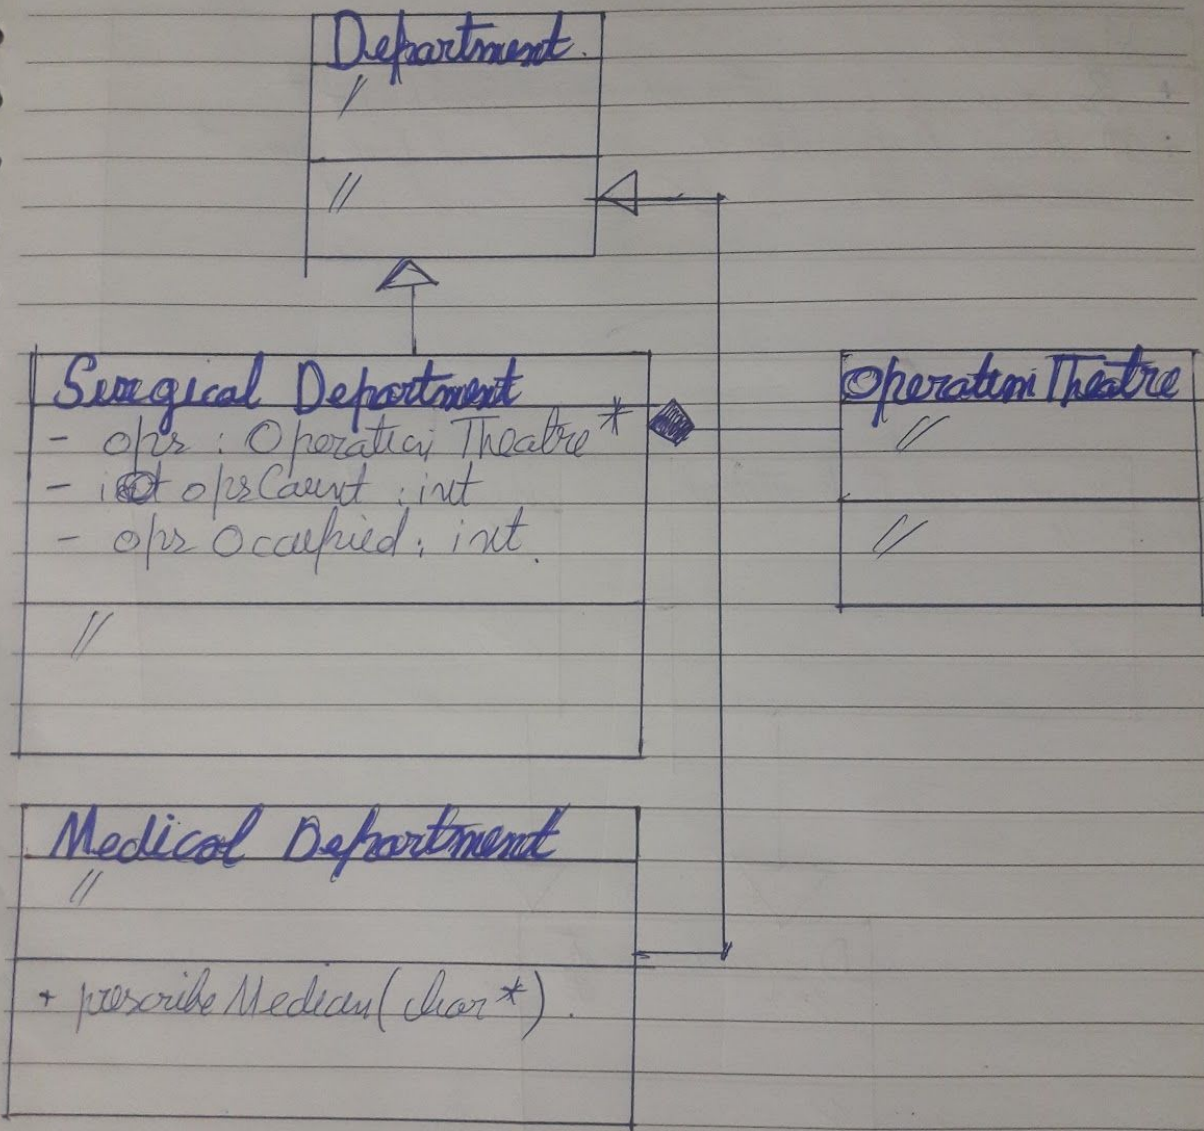 Department.
/
//
Surgical Department
- ops : Operation Theatre*
- opsCount : int
- opsOccupied : int.
//
Operation Theatre
//
//
Medical Department
//
+ prescribe (char*).